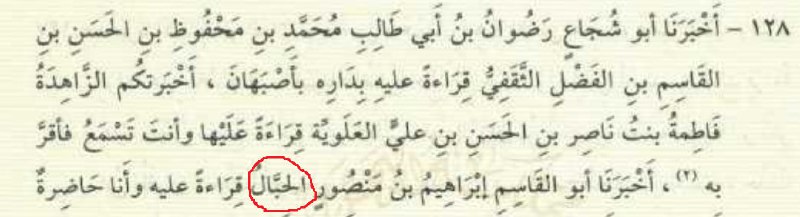 ١٢٨ – أَخْبَرَنَا أبو شُجَاعٍ رَضْوانُ بنُ أَبي طَالِبِ مُحَمَّدِ بنِ مَحْفُوظِ بنِ الحَسَنِ بنِ
القَاسِمِ بنِ الفَضْلِ الثَّقَفِيُّ قِرَاءَةً عليهِ بِدَارِه بأَصْبَهَانَ ، أَخْبَرتكُم الزَّاهِدَةُ
فَاطِمةُ بنتُ نَاصِرِ بنِ الحَسَنِ بنِ عليٍّ العَلَويَّة قِرَاءَةً عَلَيْها وأنتَ تَسْمَعُ فأقرَّ
به (٢) ، أَخْبَرَنَا أبو القَاسِمِ إبْرَاهِيمُ بنُ مَنْصُورٍ الحِبَّالُ قِرَاءةً عليه وأَنا حَاضِرةٌ